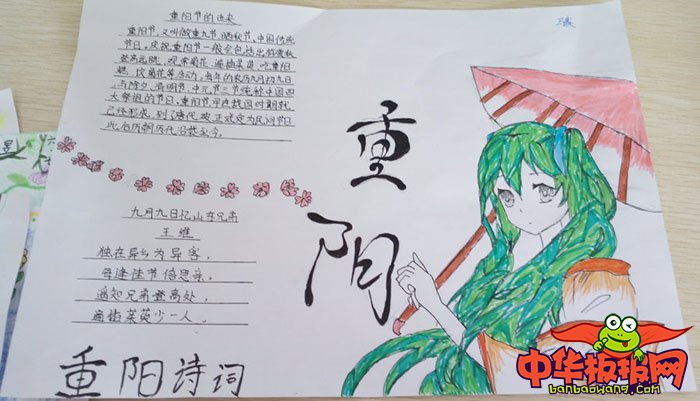 重阳节的由来
重阳节，又叫做重九节，晒秋节、中国传统
节日。庆祝重阳节一般会包括出游赏秋
登高远眺、观赏菊花、遍插茱萸、吃重阳
糕、饮菊花等活动，每年的农历九月初九日
与除夕、清明节、中元节三节统称中国四
大祭祖的节日，重阳节早在战国时期就
已经形成，到了唐代被正式定为民间节日
此后历朝历代沿袭至今。
九月九日忆山东兄弟
王维
独在异乡为异客，
每逢佳节倍思亲。
遥知兄弟登高处，
遍插茱萸少一人。
重阳诗词
重阳
中华板报网
banbaowang.com